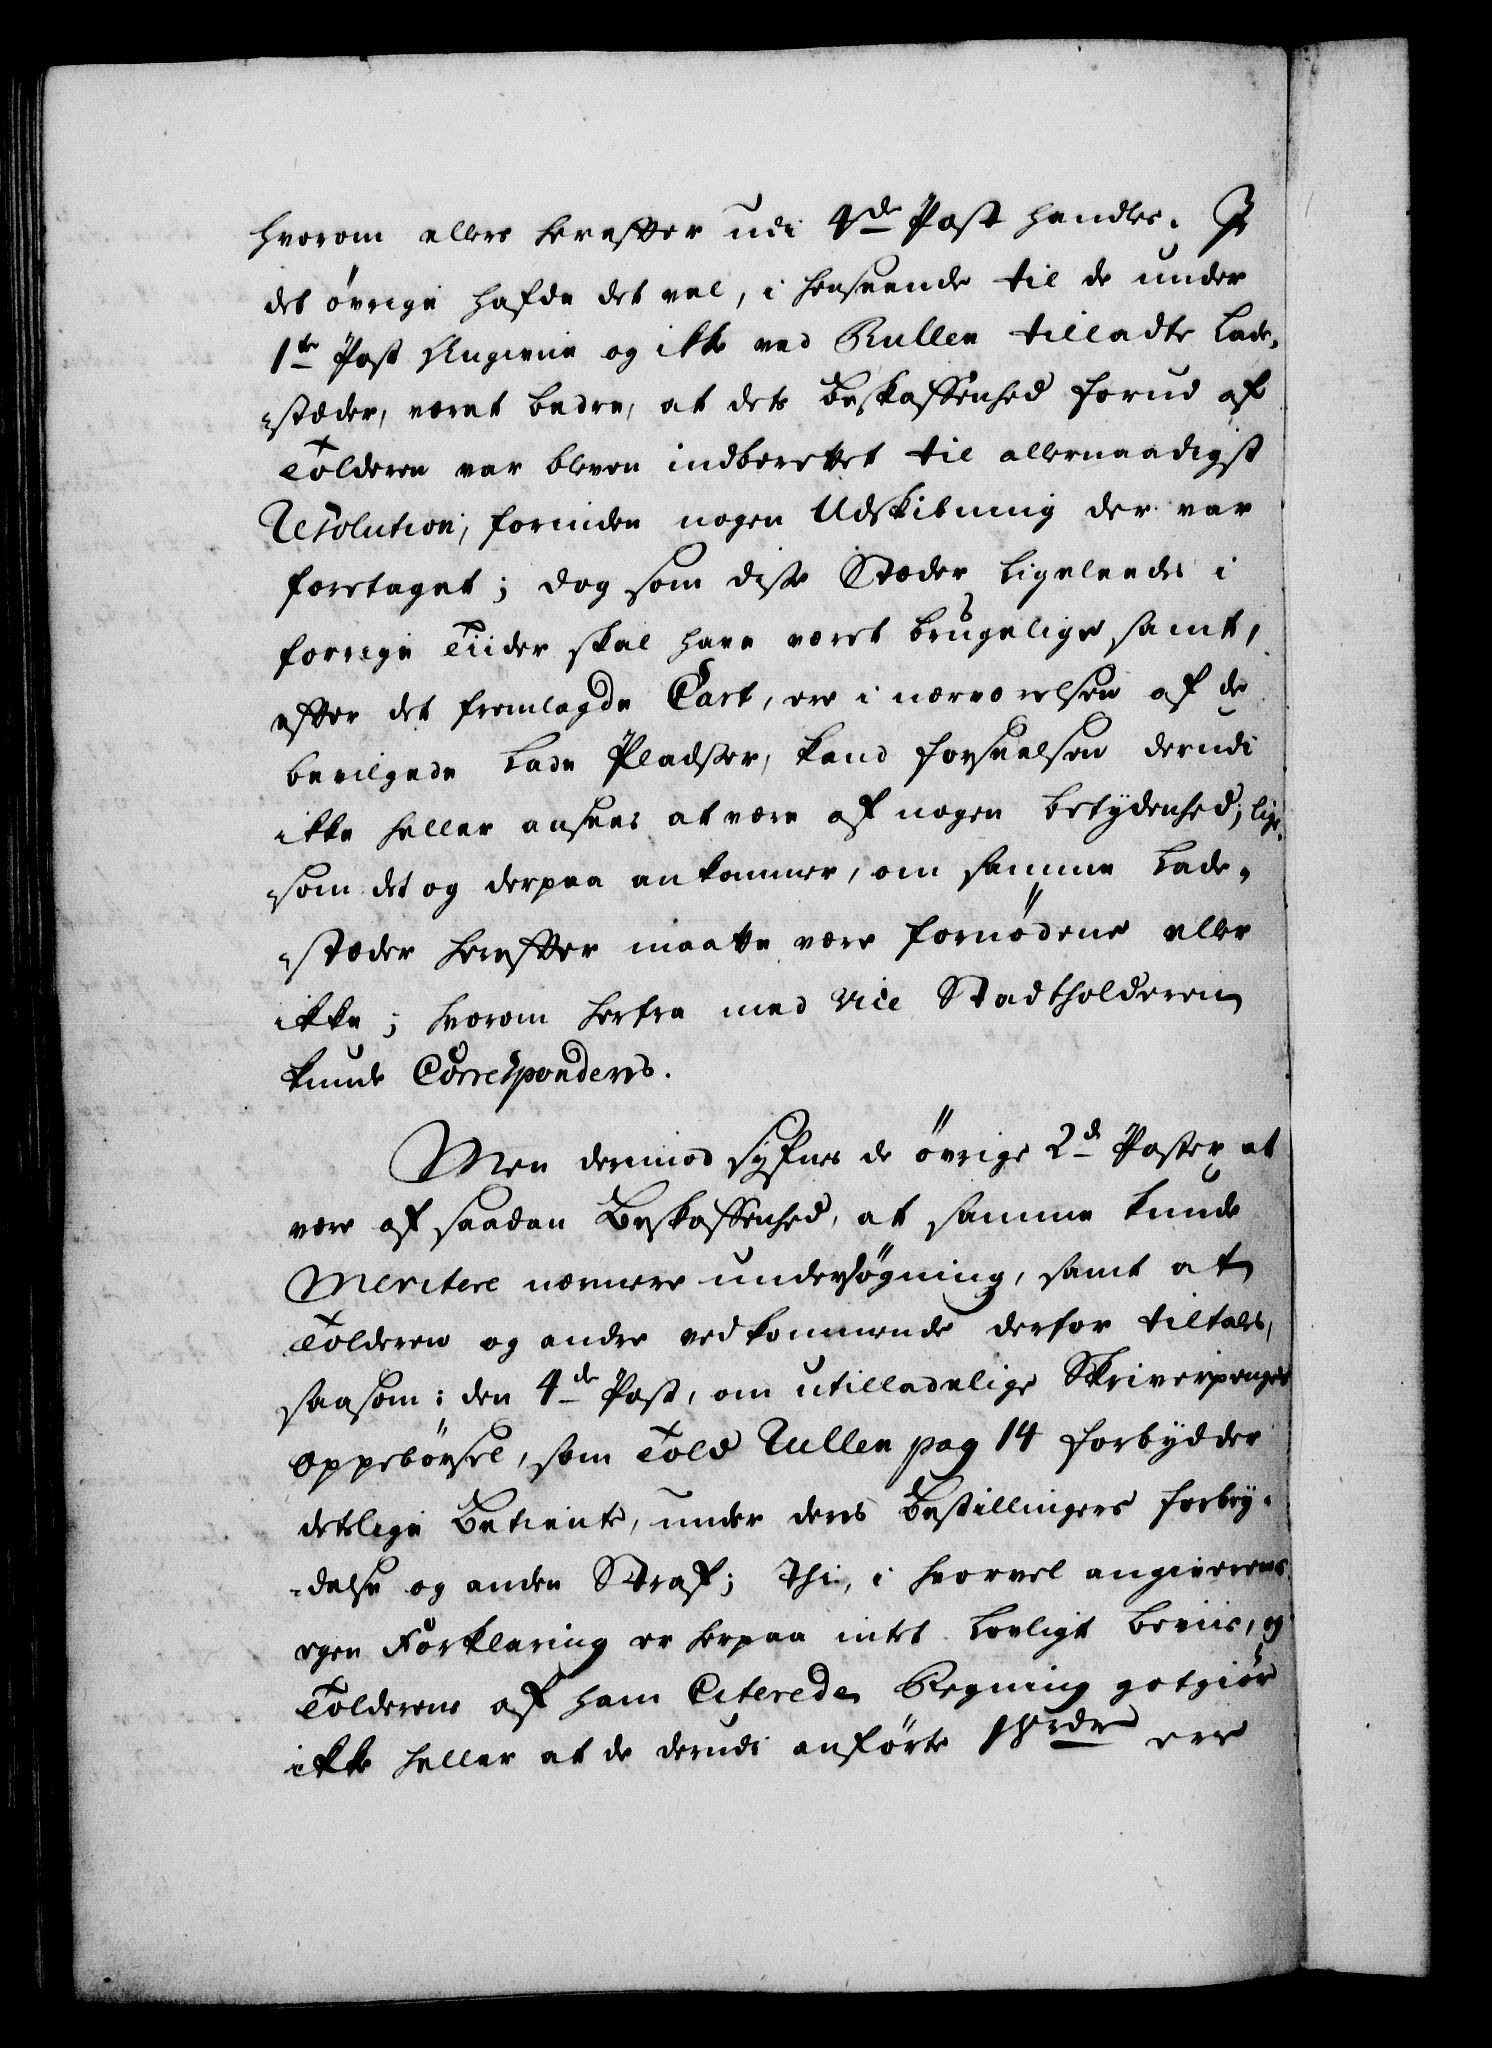 hvorom ellers herefter udi 4de Post handles. I
det øvrige hafde det vel, i henseende til de under
1te Post Angivne og ikke ved Rullen tilladte Lade-
-stæder, været bedre, at dets beskaffenhed forud af
Tolderen var bleven indberettet til allernaadigst
Resolution, forinden nogen Udskibning der var
foretaget; dog som disse Stæder ligeleedes i
forrige Tiider skal have været brugelige samt,
efter det fremlagde Cart, ere i nærværelsen af de
bevilgede Lade Pladser, kand forseelsen derudi
ikke heller ansees at være af nogen betydenhed; lige-
-som det og derpaa ankommer, om samme Lade-
-stæder herefter maatte være fornødene eller
ikke; hvorom herfra med Vice Stadtholderen
kunde Corresponderes.
Men derimod syfnes de øvrige 2de Poster at
være af saadan Beskaffenhed, at samme kunde
Meritere nærmere undersøgning, samt at
Tolderen og andre vedkommende derfor tiltales,
saasom: den 4de Post, om utilladelige Skriverpenges
oppebørsel, som Told Rullen pag 14 forbydder
detslige Betiente, under deres Bestillingers forbry-
-delse og anden Straf; Thi, i hvorvel angiverens
egen Forklaring er herpaa intet lovligt beviis, og
Tolderens af ham Citerede Regning gotgiør
ikke heller at de derudi anførte ere